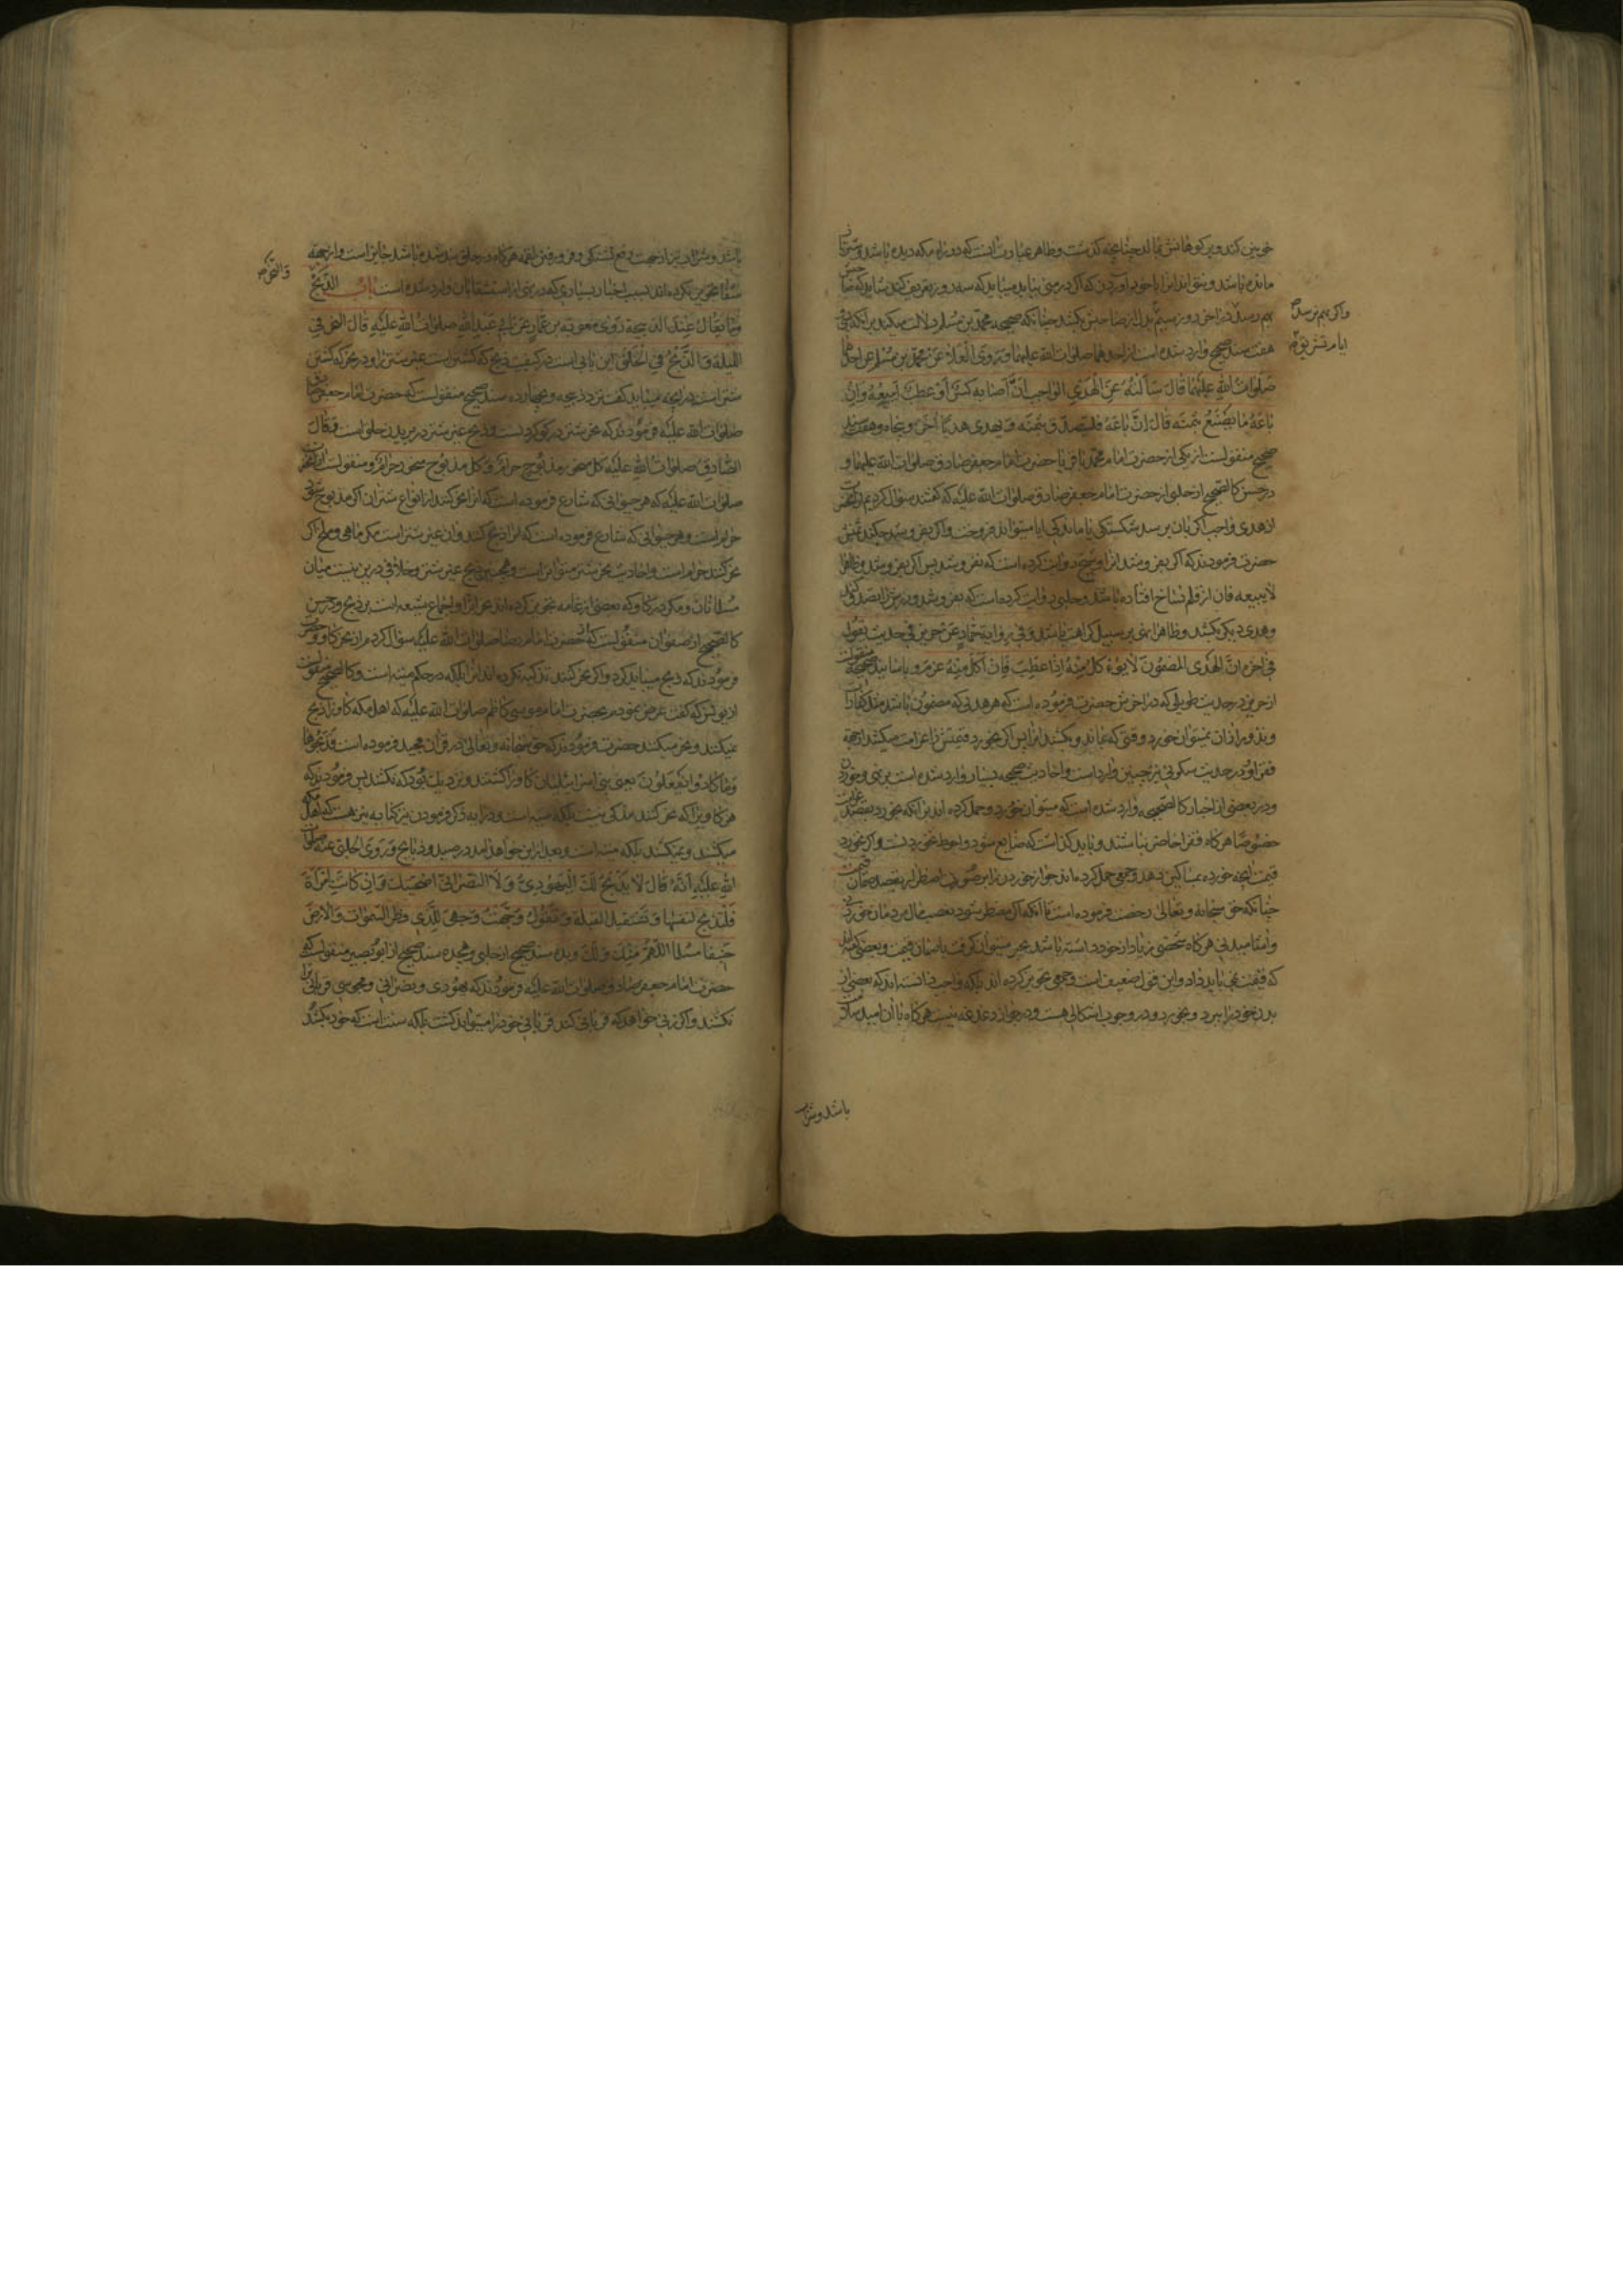 خونین کند و بر کوهانش مالد چنانچه گذشت و ظاهر عبارت آنست که در راه مکه دیده باشد
مانده باشد و نتواند آنرا با خود آوردن که اگر در منی بیابد میباید که سه روز تعریف کند شاید که صاحبش
بهم رسد در آخر روز سیم بدل از صاحبش بکشد چنانکه صحیحه محمد بن مسلم دلالت میکند بر آنکه
واگر بهم نرسد تا
ایام تشریق
هفت سند صحیح وارد شده است از احدهما صلوات الله علیهما وَرَوَی الْعَلاءُ عَنْ مُحَمَّدِ بن مُسْلِمٍ عن احدهما
صَلَوَاتُ اللهِ عَلَیْهِمَا قَالَ سَأَلْتُهُ عَنِ الْهَدْيِ الْوَاجِبِ اِنْ اَصَابَهُ کَسْرٌ أَوْ عَطَبٌ أَیَبِیعُهُ وَاِنْ
بَاعَهُ مَا یَصْنَعُ بِثَمَنِهِ قَالَ اِنْ بَاعَهُ فَلْیَتَصَدَّقْ بِثَمَنِهِ وَ یُهْدِی هَدْیًا آخَرَ و پنجاه و هفت سند
صحیح منقولست از یکی از حضرت امام محمد باقر یا حضرت امام جعفر صادق صلوات الله علیهما و
در حسن کالصحیح از حلبی از حضرت امام جعفر صادق صلوات الله علیه که گفتند سؤال کردیم از آنحضرت
از هدی واجب اگر بآن برسد شکستگی یا ماندگی آیا میتواند فروخت و اگر بفروشد چه کند ثمنش
حضرت فرمودند که اگر بفروشد آنرا و شیخ روایت کرده است که نفروشد پس اگر بفروشد و ظاهرا
لا یبیعه فان از قلم نساخ افتاده باشد و حلبی روایت کرده است که بفروشد و زرش را تصدق کند
و هدی دیگر بکشد و ظاهرا نهی بر سبیل کراهت باشد وَ فِي رِوَایَةِ حَمَّادٍ عَنْ حَرِیزٍ فِي حَدِیثٍ یَقُولُ
فِي آخِرِهِ اِنَّ الْهَدْيَ الْمَضْمُونَ لَا یُؤْکَلُ مِنْهُ اِذَا عَطِبَ فَاِنْ اَکَلَ مِنْهُ غَرِمَ و باسانید صحیحه منقولست
از حریز در حدیث طویلی که در آخرش حضرت فرموده است که هر هدیی که مضمون باشد مثل کفارات
و نذور از آن نمیتوان خورد وقتی که بماند و بکشند آنرا پس اگر بخورد قیمتش را غرامت میکشد از جهة
فقرا و در حدیث سکونی نیز چنین وارد است و احادیث صحیحه بسیار وارد شده است بر نهی و خوردن
و در بعضی از اخبار کالصحیحه وارد شده است که میتوان خورد و حمل کرده اند بر آنکه بخورد بقصد غرامت
خصوصا هر گاه فقرا حاضر نباشند و باید گذاشت که ضایع شود و احوط نخوردنست و اگر بخورد
قیمت آنچه خورده بمساکین دهد و جمعی حمل کرده اند جواز خوردن را بر صورت اضطرار بقصد ضمان قیمت
چنانکه حق سبحانه و تعالی رخصت فرموده است تا آنکه اگر مضطر شود بغصب مال مردمان خوردن
و امثال میدانی هر گاه شخصی زیاد از خود داشته باشد بجبر میتوان گرفت باستان قیمت و بعضی گفته اند
که قیمت نمی باید داد و این قول ضعیف است و جمعی تجویز کرده اند بلکه واجب دانسته اند که بعضی از
بدن خود را ببرد و بخورد و در وجوب اشکالی هست و در جواز دغدغه نیست هر گاه با آن امید سلامت
باشد و شراب
باشد و شراب نیز از جهت دفع تشنگی و فرو رفتن لقمه هر گاه در حلق بند شده باشد جایز است و از جهة
شفا تجویز نکرده اند بسبب اخبار بسیاری که در نهی از استشفا بآن وارد شده است بَابُ الذَّبْحِ
وَالنَّحْرِ
وَمَا یُقَالُ عِنْدَ الذَّبِیحَةِ رَوَی مُعَاوِیَةُ بن عَمَّارٍ عَنْ أَبِي عَبْدِ اللهِ صَلَوَاتُ اللهِ عَلَیْهِ قَالَ النَّحْرُ فِي
اللَّبَّةِ وَ الذَّبْحُ فِي الْحَلْقِ این بابی است در کیفیت ذبح که کشتن است غیر شتر را و در نحر که کشتن
شتر است در آنچه میباید گفت نزد ذبیحه و بچهارده سند صحیح منقولست که حضرت امام جعفر صادق
صلوات الله علیه فرمودند که نحر شتر در گودی است و ذبح غیر شتر در بریدن حلق است وَ قَالَ
الصَّادِقُ صَلَوَاتُ اللهِ عَلَیْهِ کُلُّ مَنْحُورٍ مَذْبُوحٍ حَرَامٌ وَ کُلُّ مَذْبُوحٍ مَنْحُورٍ حَرَامٌ و منقولست از آنحضرت
صلوات الله علیه که هر حیوانی که شارع فرموده است که آنرا نحر کنند از انواع شتران اگر مذبوح شود
حرام است و هر حیوانی که شارع فرموده است که آنرا ذبح کنند و آن غیر شتر است مگر ماهی و ملخ اگر
نحر کنند حرام است و احادیث نحر شتر متواتر است و همچنین ذبح غیر شتر و خلافی درین نیست میان
مسلمانان و مگر در گاو که بعضی از عامه تجویز کرده اند نحر آنرا و اجماع شیعه است بر ذبح و در حسن
کالصحیح از صفوان منقولست که از حضرت امام رضا صلوات الله علیه سؤال کردم از نحر گاو و حضرت
فرمودند که ذبح میباید کرد و اگر نحر کنند تذکیه نکرده اند آنرا بلکه در حکم میته است و کالصحیح منقولست
از یونس که گفت عرض نمودم بحضرت امام موسی کاظم صلوات الله علیه که اهل مکه گاو را ذبح
نمیکنند و نحر میکنند حضرت فرمودند که حق سبحانه و تعالی در قرآن مجید فرموده است فَذَبَحُوهَا
وَمَا کَادُوا یَفْعَلُونَ یعنی بنی اسرائیلیان گاو را کشتند و نزدیک بود که نکشند پس فرمودند که
هر گاویرا که نحر کنند مذکی نیست بلکه میته است و در آیه ذکر فرمودن نیز کنایه نیز هست که اهل مکه
میکشند و نمیکشند بلکه میته است و بعد ازین خواهد آمد در صید و ذبایح وَرَوَی الْحَلَبِيُّ عَنْهُ صَلَوَاتُ
اللهِ عَلَیْهِ اَنَّهُ قَالَ لَا یَذْبَحُ لَكَ الْیَهُودِيُّ وَ لَا النَّصْرَانِيُّ اُضْحِیَّتَكَ وَ اِنْ کَانَتِ امْرَأَةً
فَلْتَذْبَحْ لِنَفْسِهَا وَ تَسْتَقْبِلُ الْقِبْلَةَ وَ تَقُولُ وَجَّهْتُ وَجْهِيَ لِلَّذِي فَطَرَ السَّمَوَاتِ وَ الْاَرْضَ
حَنِیفًا مُسْلِمًا اَللّٰهُمَّ مِنْكَ وَ لَكَ و بده سند صحیح از حلبی و هجده سند صحیح از ابو بصیر منقولست که
حضرت امام جعفر صادق صلوات الله علیه فرمودند که یهودی و نصرانی و مجوسی قربانی ترا
نکشند و اگر زنی خواهد که قربانی کند قربانی خود را میتواند کشت بلکه سنت است که خود بکشد